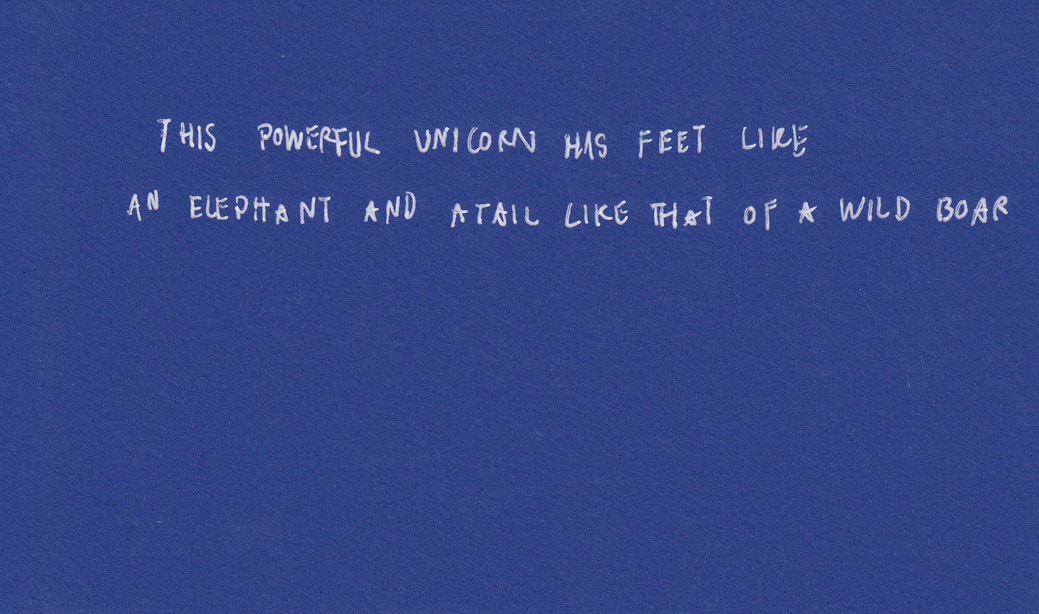 THIS POWERFUL UNICORN HAS FEET LIKE
AN ELEPHANT AND A TAIL LIKE THAT OF A WILD BOAR